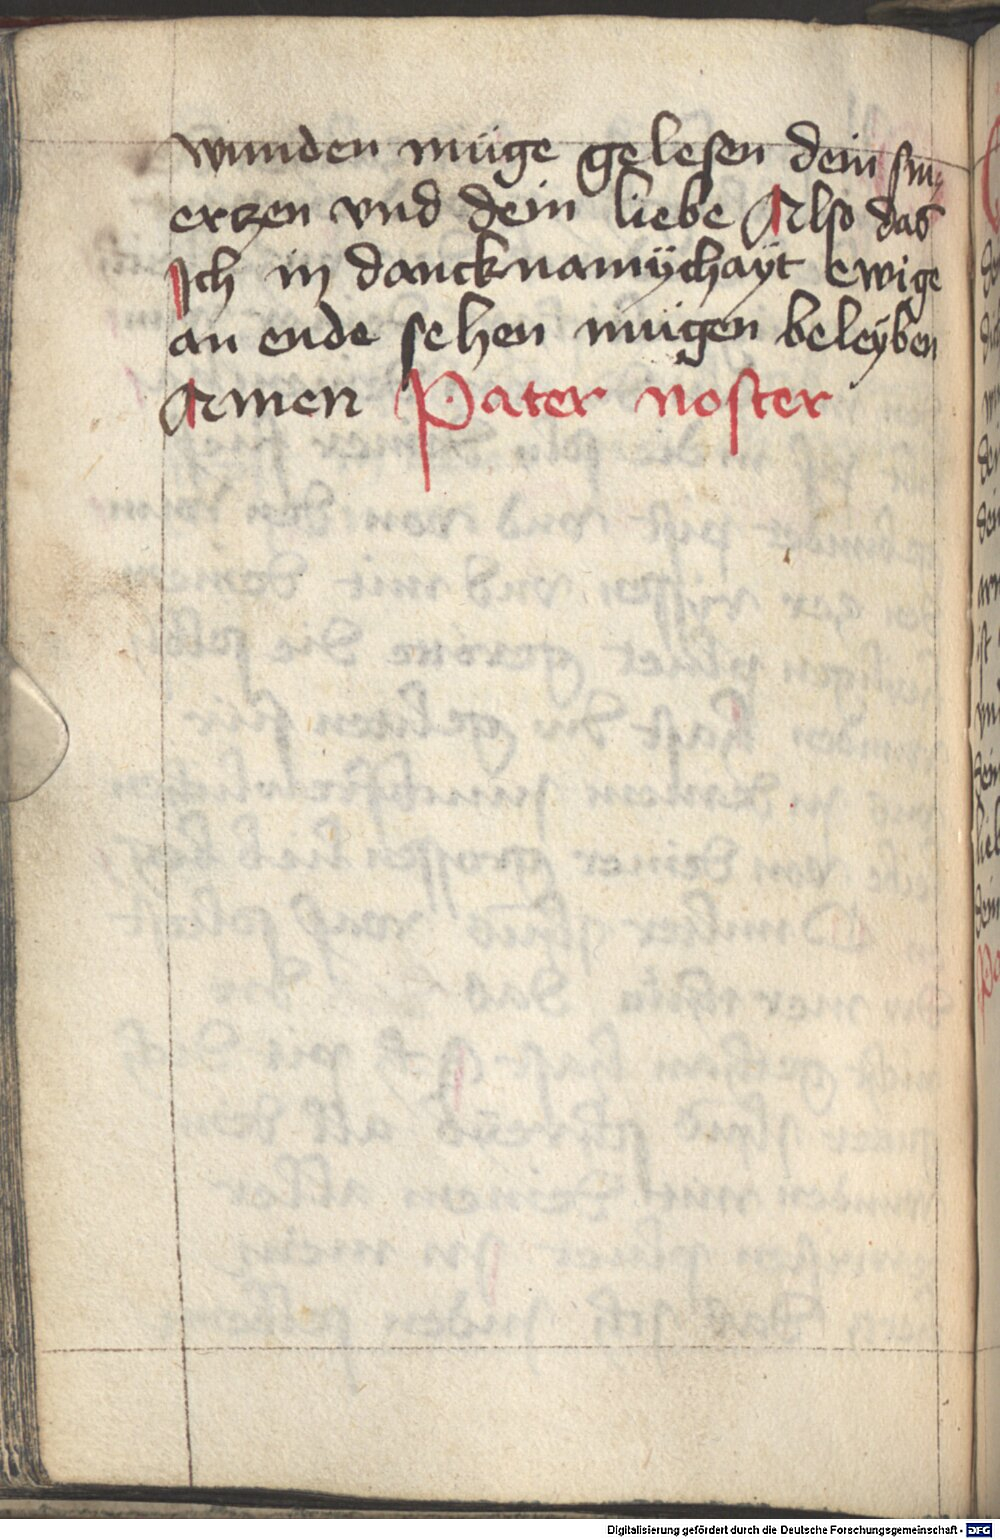 wunden müge gelesen dein sm=
ertzen vnd dein liebe Also das
Ich in dancknamÿchaÿt ewige
an ende sehen mügen beleÿben
Amen Pater noster
Digitalisierung gefördert durch die Deutsche Forschungsgemeinschaft - DFG